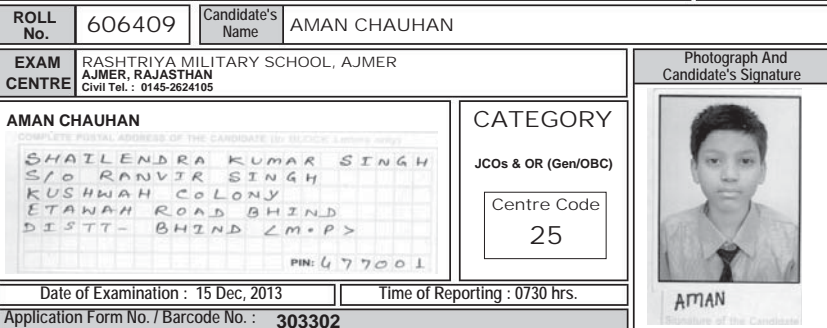 ROLL No. 606409 Candidate's Name AMAN CHAUHAN
EXAM CENTRE RASHTRIYA MILITARY SCHOOL, AJMER
AJMER, RAJASTHAN
Civil Tel. : 0145-2624105
Photograph And
Candidate's Signature
AMAN CHAUHAN
COMPLETE POSTAL ADDRESS OF THE CANDIDATE (in BLOCK Letters only)
SHAILENDRA KUMAR SINGH
S/O RANVIR SINGH
KUSHWAH COLONY
ETAWAH ROAD BHIND
DISTT- BHIND <M.P>
PIN: 477001
CATEGORY
JCOs & OR (Gen/OBC)
Centre Code
25
AMAN
Signature of the Candidate
Date of Examination : 15 Dec, 2013 Time of Reporting : 0730 hrs.
Application Form No. / Barcode No. : 303302